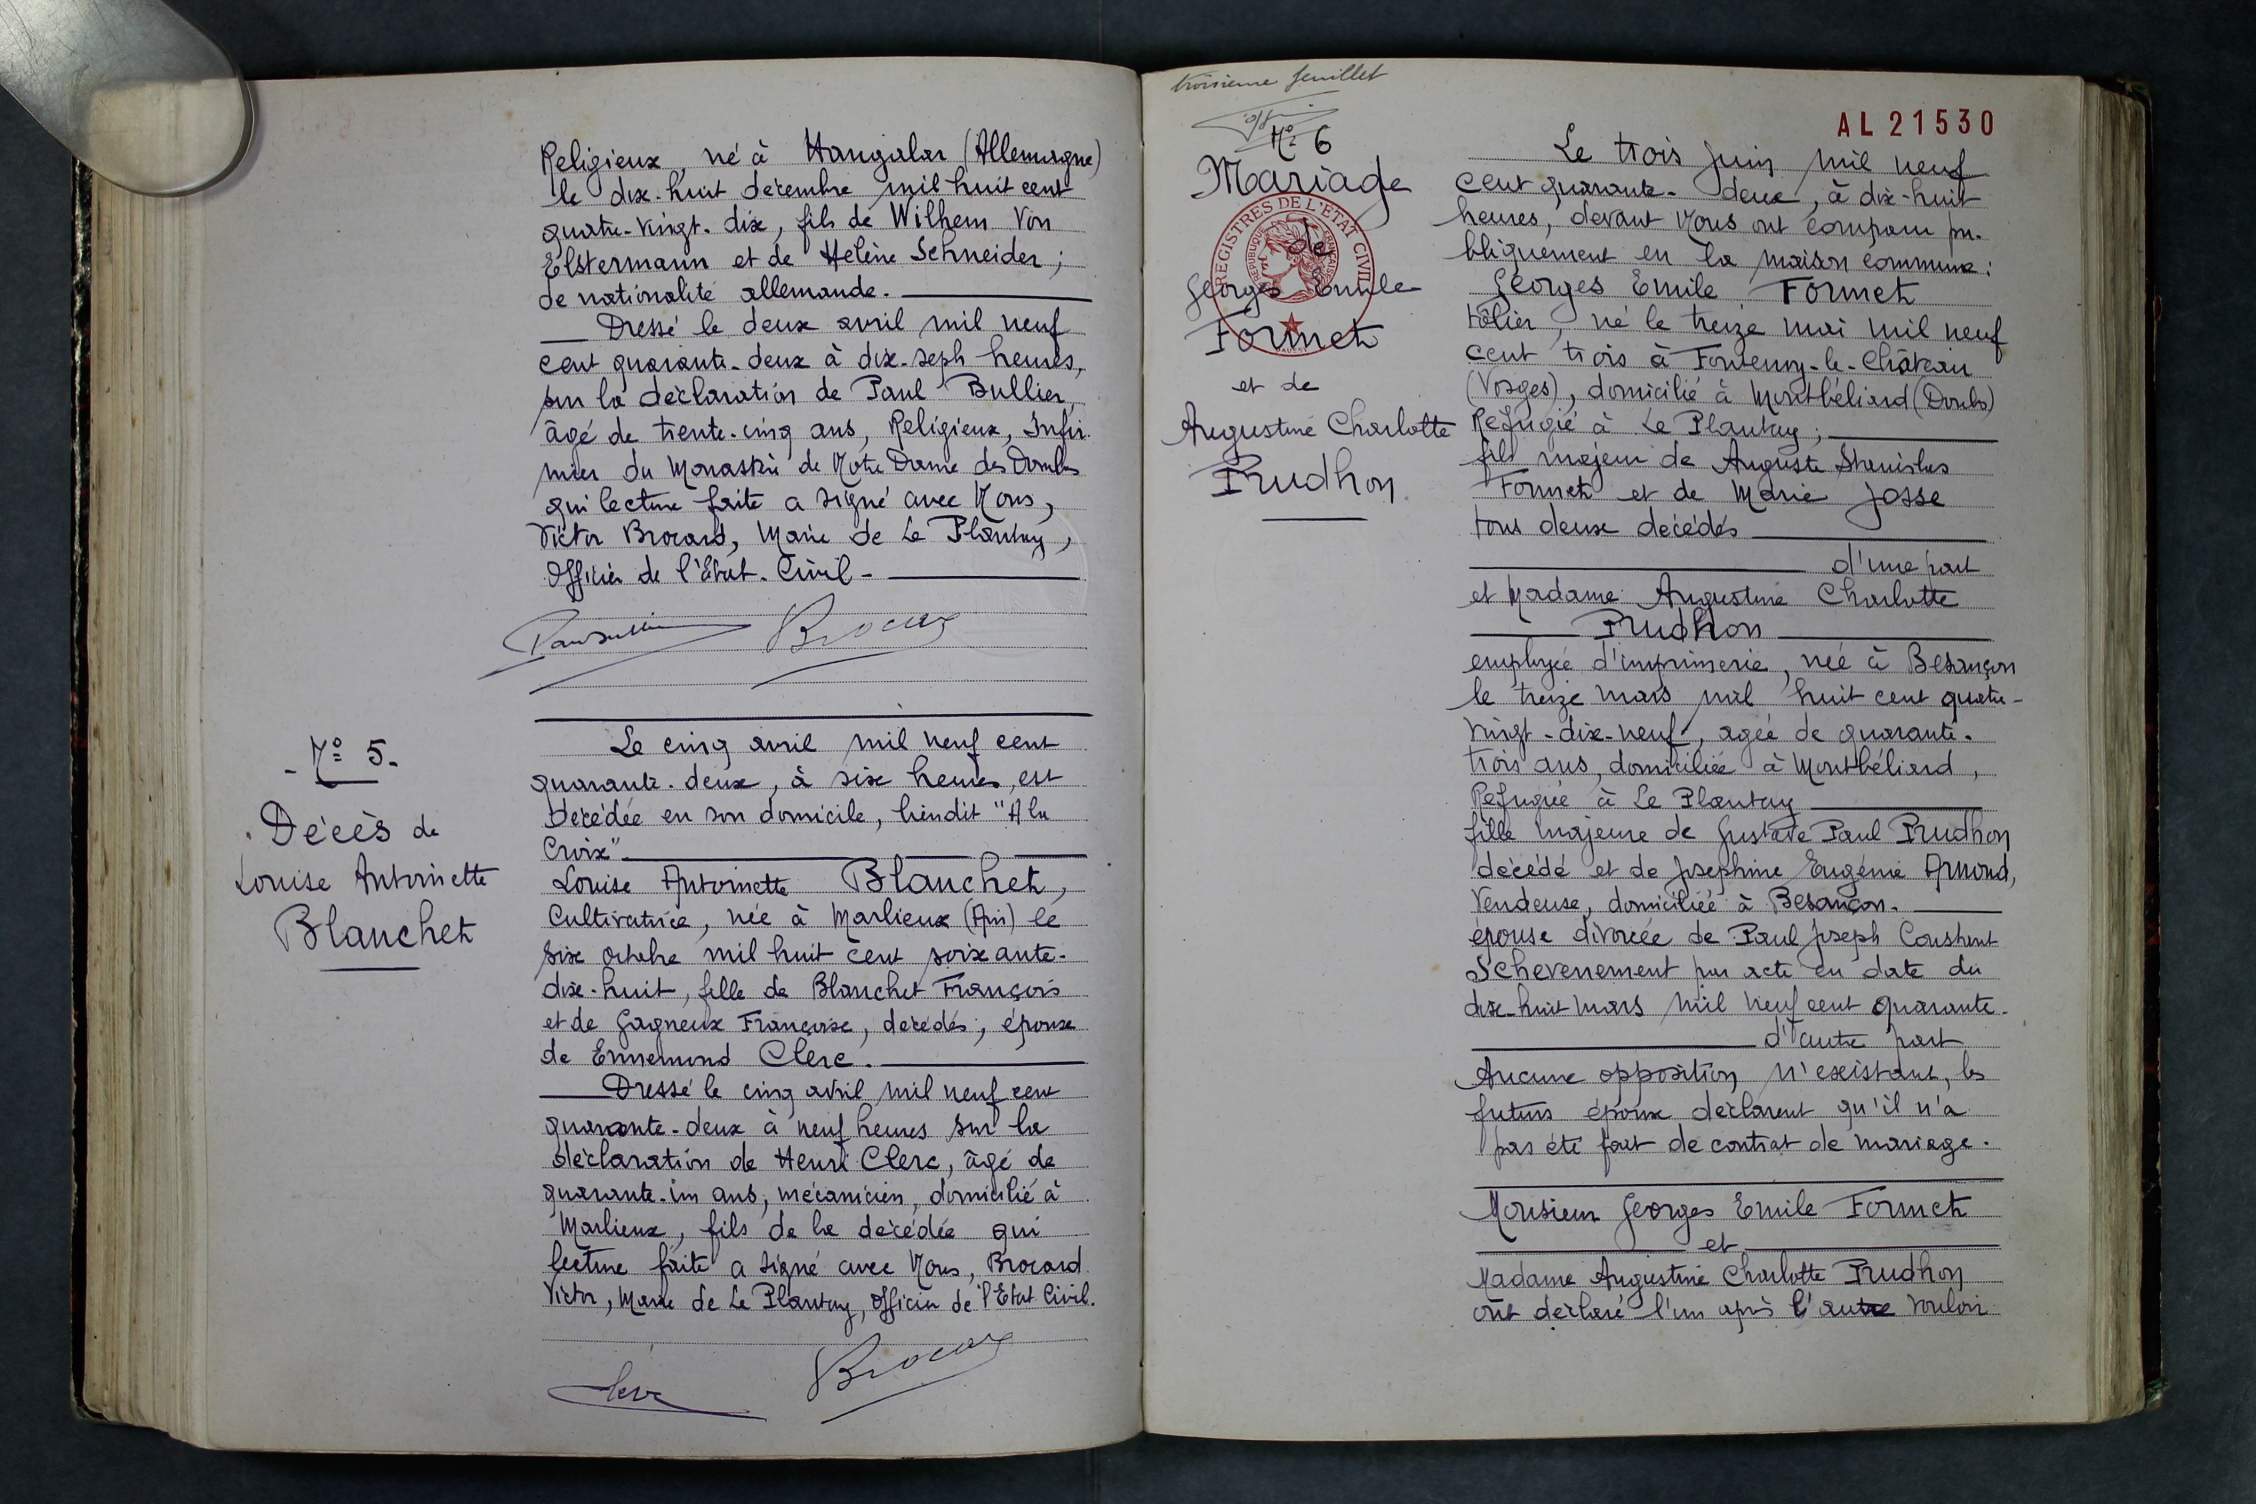 Religieux, né à Hangalar (Allemagne)
le dix-huit décembre mil huit cent
quatre-vingt-dix, fils de Wilhem Von
Elstermann et de Helène Schneider ;
de nationalité allemande.
Dressé le deux avril mil neuf
cent quarante-deux à dix-sept heures,
sur la déclaration de Paul Bullier,
âgé de trente-cinq ans, Religieux, Infir-
mier du Monastère de Notre Dame des Dombes
qui lecture faite a signé avec Nous,
Victor Brocard, Maire de Le Plantay,
Officier de l'Etat-Civil -
Paul Bullier Brocard
- No 5 -
Décès de
Louise Antoinette
Blanchet
Le cinq avril mil neuf cent
quarante-deux, à six heures, est
décédée en son domicile, lieudit "A la
Croix"
Louise Antoinette Blanchet,
Cultivatrice, née à Marlieux (Ain) le
six octobre mil huit cent soixante-
dix-huit, fille de Blanchet François
et de Gagneux Françoise, décédés, épouse
de Ennemond Clerc.
Dressé le cinq avril mil neuf cent
quarante-deux à neuf heures sur la
déclaration de Henri Clerc, âgé de
quarante-un ans, mécanicien, domicilié à
Marlieux, fils de la décédée qui
lecture faite a signé avec Nous, Brocard
Victor, Maire de Le Plantay, officier de l'Etat Civil.
Clerc Brocard
troisième feuillet
No 6
Mariage
de
Georges Emile
Formet
et de
Augustine Charlotte
Prudhon
REGISTRES DE L'ETAT CIVIL
REPUBLIQUE FRANÇAISE
AL 21530
Le trois juin mil neuf
cent quarante-deux, à dix-huit
heures, devant Nous ont comparu pu-
bliquement en la maison commune :
Georges Emile Formet
tôlier, né le treize mai mil neuf
cent trois à Fontenoy-le-Château
(Vosges), domicilié à Montbéliard (Doubs)
Refugié à Le Plantay ;
fils majeur de Auguste Stanislas
Formet et de Marie Josse
tous deux décédés
d'une part
et Madame Augustine Charlotte
Prudhon
employée d'imprimerie, née à Besançon
le treize mars mil huit cent quatre-
vingt-dix-neuf, agée de quarante-
trois ans, domiciliée à Montbéliard,
Refugiée à Le Plantay
fille majeure de Gustave Paul Prudhon
décédé et de Josephine Eugénie Armand,
Vendeuse, domiciliée à Besançon.
épouse divorcée de Paul Joseph Constant
Schevenement par acte en date du
dix-huit mars mil neuf cent quarante-
d'autre part
Aucune opposition n'existant, les
futurs époux déclarent qu'il n'a
pas été fait de contrat de mariage.
Monsieur Georges Emile Formet
et
Madame Augustine Charlotte Prudhon
ont déclaré l'un après l'autre vouloir